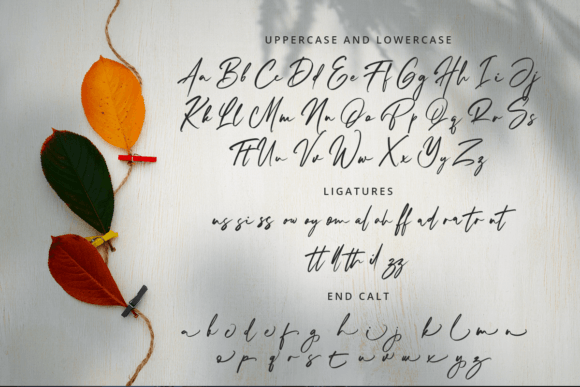 UPPERCASE AND LOWERCASE
Aa Bb Cc Dd Ee Ff Gg Hh Ii Jj
Kk Ll Mm Nn Oo Pp Qq Rr Ss
Tt Uu Vv Ww Xx Yy Zz
LIGATURES
us si ss ow oy om al oh ff ad or at or nt
tt ll th il zz
END CALT
a b c d e f g h i j k l m n
o p q r s t u v w x y z